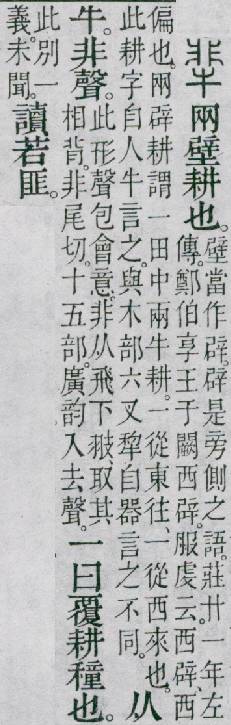 兩壁耕也。
壁當作辟。辟是旁側之語。莊廿一年左
傳。鄭伯享王于闕西辟。服虔云。西辟、西
偏也。兩辟耕謂一田中兩牛耕。一從東往、一從西來也。
此耕字自人牛言之。與木部六叉犂自器言之不同。
从
牛。非聲。
此形聲包會意。非从飛下翄、取其
相背。非尾切。十五部。廣韵入去聲。
一曰覆耕種也。
此別一
義未聞。
讀若匪。